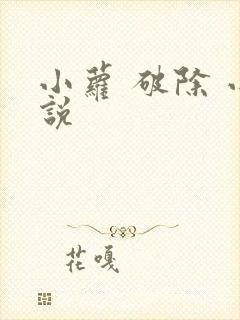 小蘿 破除 小
說
花嘎